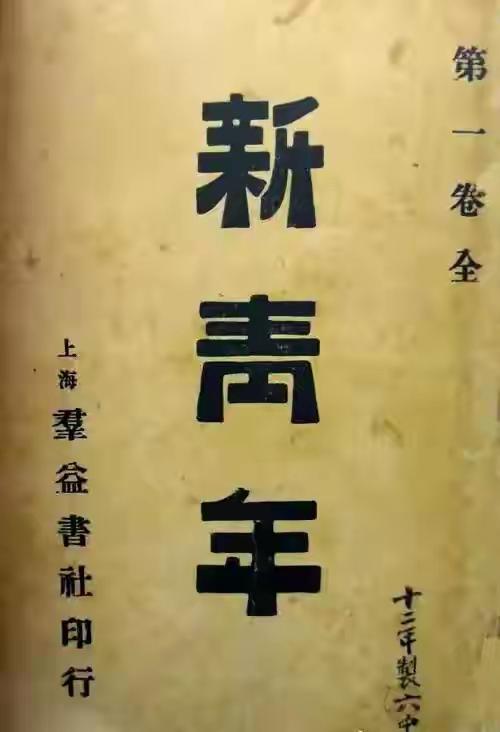 第一卷全
新青年
上海羣益書社印行
十二年製六中